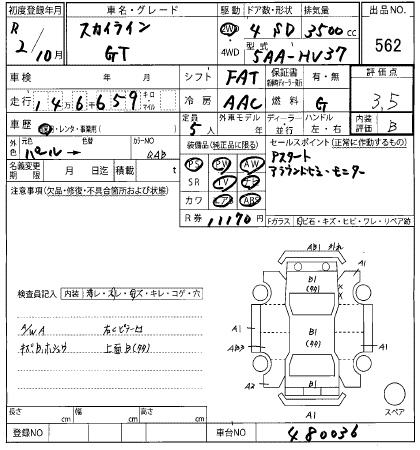 初度登録年月 車名・グレード 駆動 ドア数・形状 排気量 出品NO.
R 2/10月 スカイライン GT 2WD 4WD 4 SD 3500cc 562
型式 5AA-HV37
車検 年 月 シフト FAT 保証書 有・無 評価点
走行 14万6千659 キロ マイル 冷房 AAC 燃料 G 3.5
車歴 自家用・レンタ・事業用( ) 定員 5人 外車モデル 年 ディーラー 並行 ハンドル 左・右 内装評価 B
外色 元色 パール→ 色替 カラーNO QAB 装備品(純正品に限る) セールスポイント(正常に作動するもの)
名義変更期限 月 日迄 積載 t PS PW アスタート
注意事項(欠品・修復・不具合箇所および状態) SR TV ナビ アラウンドビューモニター
カワ エアB ABS
R券 11170円 Fガラス 飛石・キズ・ヒビ・ワレ・リペア跡
AB1 外れ
A1
B1
(90)
検査員記入 内装 汚レ・スレ・キズ・キレ・コゲ・穴
A/W A
上面B(90)
A1
AB3
B1
(90)
A1
A2
B1
A1
スペア
長さ cm 幅 cm 高さ cm
登録NO 車台NO 480036